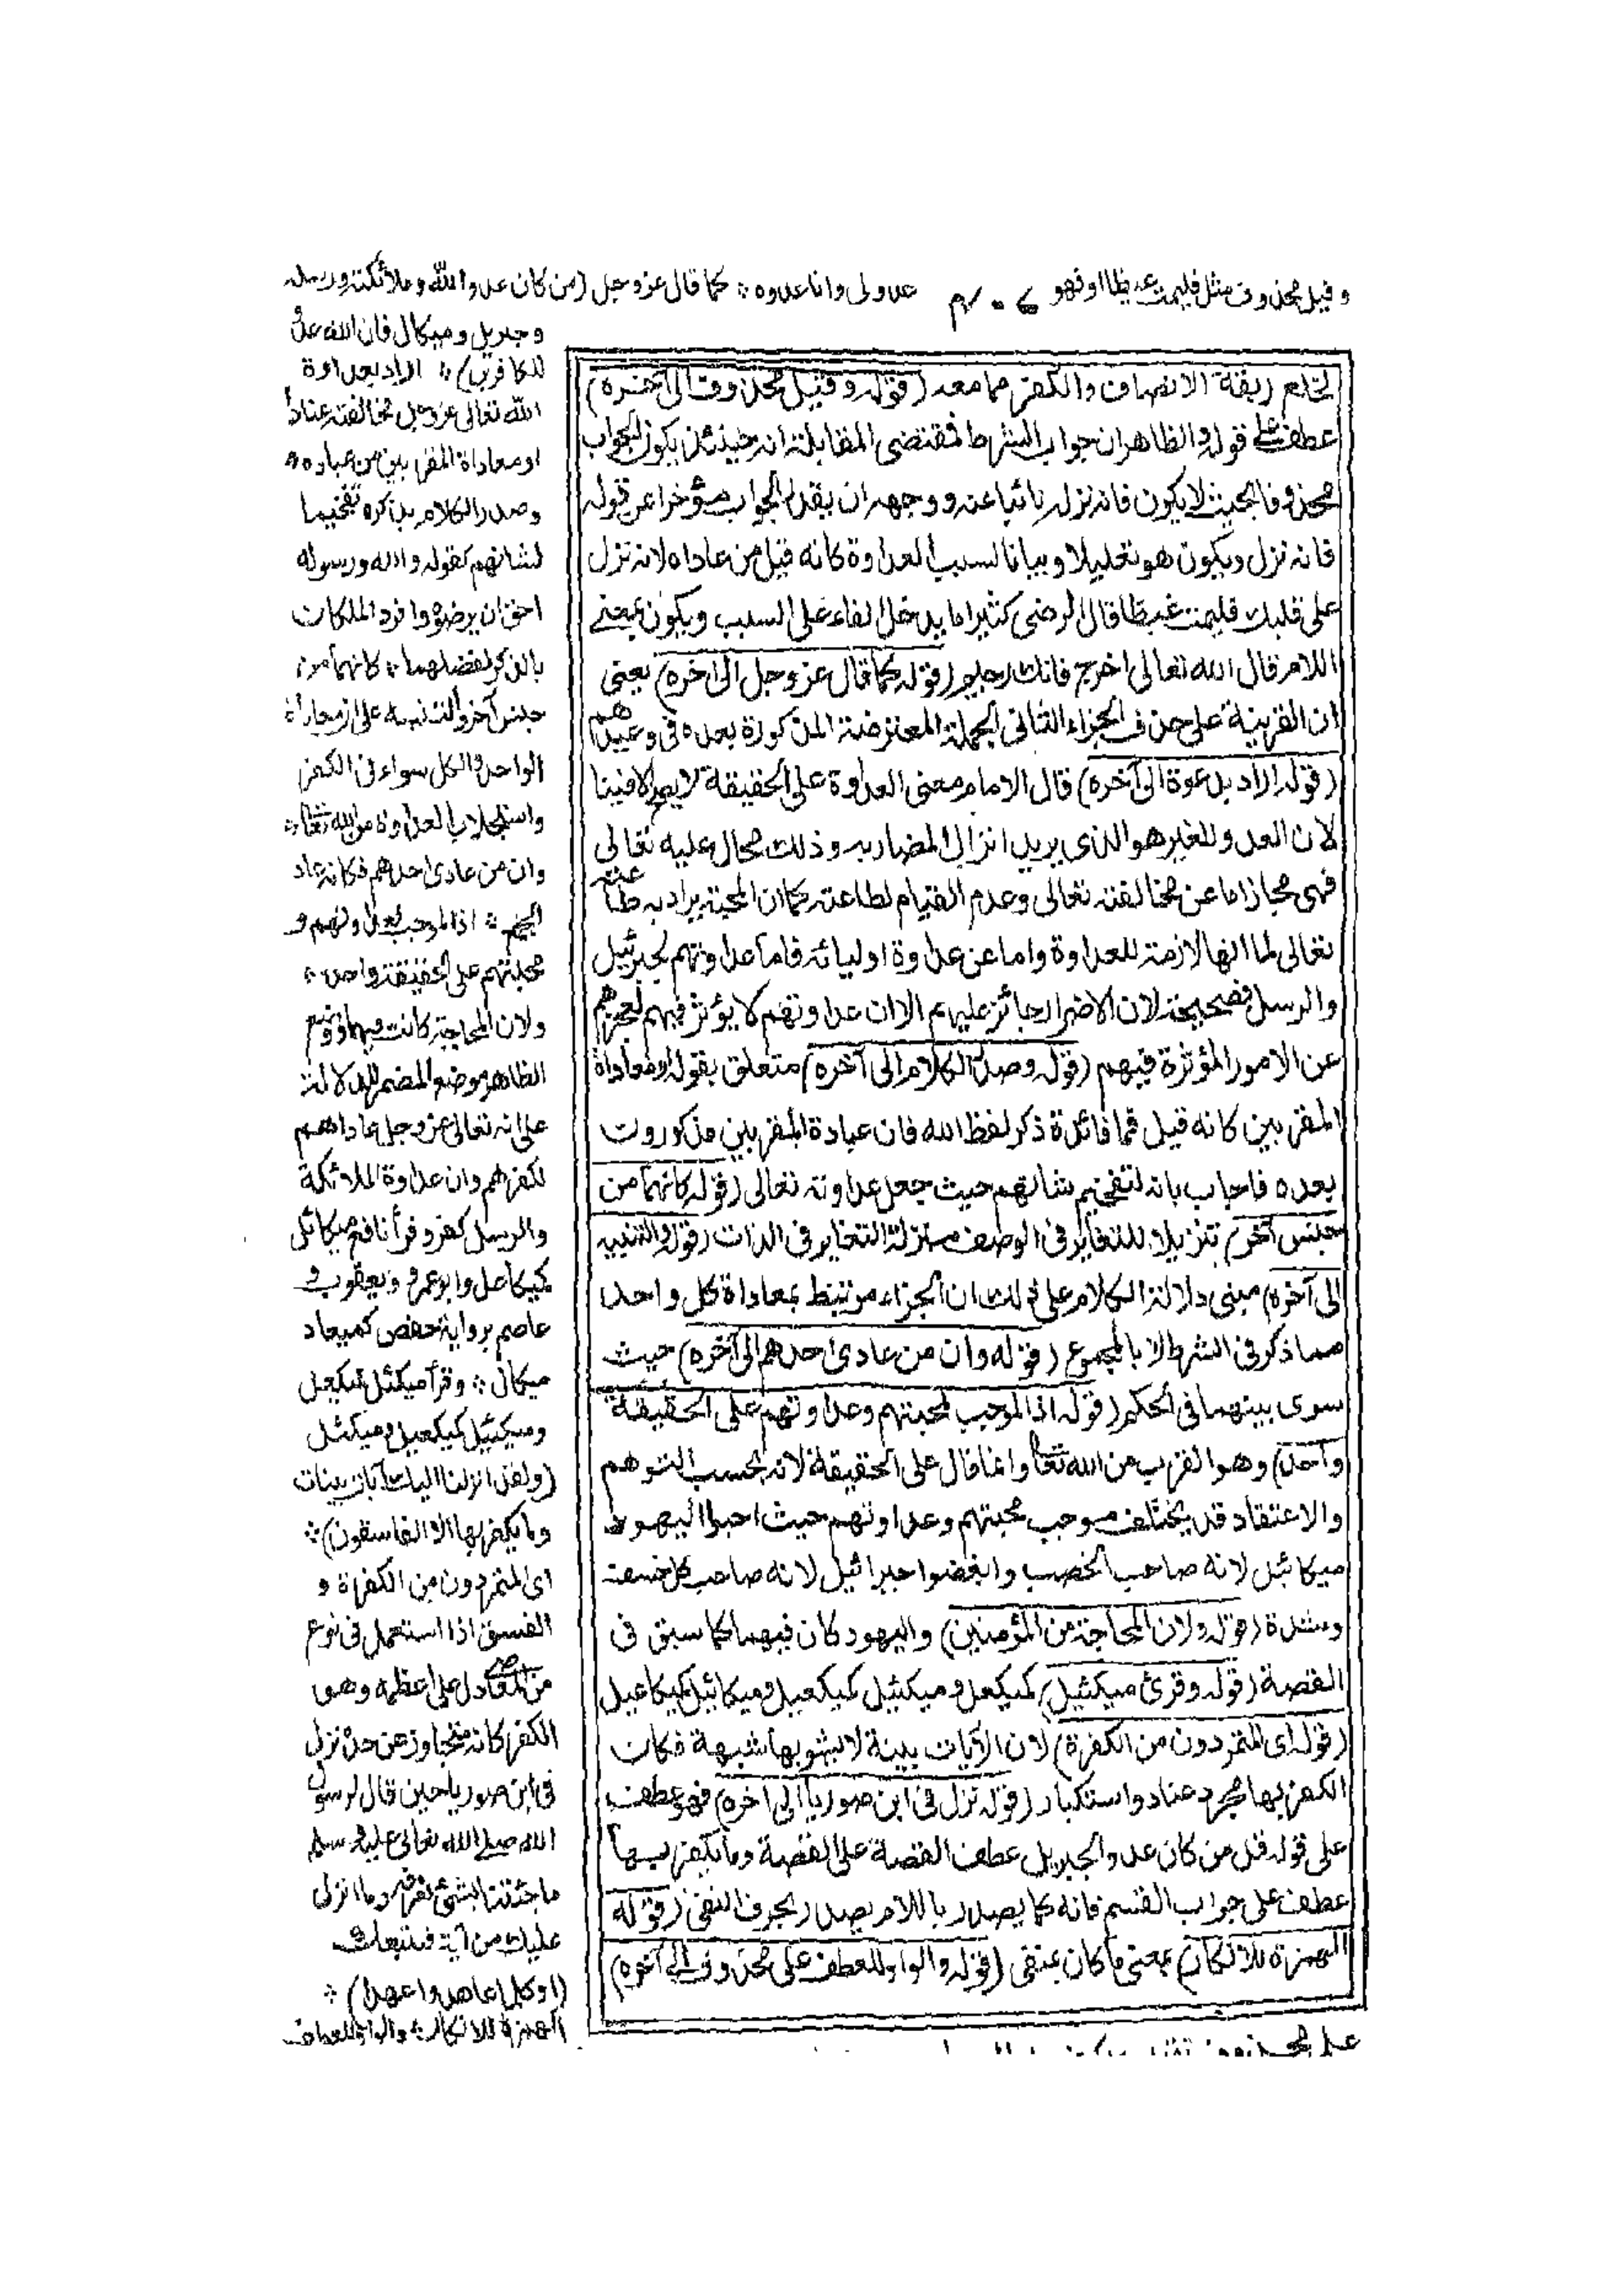 وقيل محذوف مثل فليمت غيظا اوفهو
عدولى وانا عدوه ؞ كما قال عزوجل (من كان عدوا لله وملائكته ورسله
وجبريل وميكال فان الله عدو
للكافرين) ؞ اراد بعداوة
الله تعالى عزوجل مخالفته عنادا
او معاداة المقربين من عباده ؞
وصدر الكلام بذكره تفخيما
لشانهم كقوله والله ورسوله
احق ان يرضوه وافرد الملكان
بالذكر لفضلهما ؞ كانهما من
جنس آخر والتنبيه على ان معاداة
الواحد والكل سواء فى الكفر
واستجلاب العداوة من الله تعالى ؞
وان من عادى احدهم فكانه عاد
الجميع ؞ اذ الموجب لعداوتهم و
محبتهم على الحقيقة واحد ؞
ولان المحاجة كانت فيهما ووضع
الظاهر موضع المضمر للدلالة
على انه تعالى عزوجل عاداهم
لكفرهم وان عداوة الملائكة
والرسل كفر وقرأ نافع ميكائل
كميكاعل وابو عمرو ويعقوب و
عاصم برواية حفص كميعاد
ميكال ؞ وقرأ ميكئل كميكعل
وميكئيل كميكعيل وميكئل
(ولقد انزلنا اليك آيات بينات
وما يكفر بها الا الفاسقون) ؞
اى المتمردون من الكفرة و
الفسق اذا استعمل فى نوع
من المعاصى دل على اعظمه وهو
الكفر كانه متجاوز عن حده نزل
فى ابن صوريا حين قال لرسول
الله صلى الله تعالى عليه وسلم
ما جئتنا بشئ نعرفه وما انزل
عليك من آية فنتبعك
(اوكلما عاهدوا عهدا) ؞
الهمزة للانكار ؞ والواو للعطف
لخلع ربقة الانصاف والكفر مما معه (قوله وقيل محذوف الى آخره)
عطف على قوله والظاهر ان جواب الشرط فمقتضى المقابلة انه حينئذ يكون الجواب
محذوفا بحيث لا يكون فانه نزله نائبا عنه ووجهه ان يقدر الجواب مؤخرا عن قوله
فانه نزل ويكون هو تعليلا وبيانا لسبب العداوة كانه قيل من عاداه لانه نزل
على قلبك فليمت غيظا قال الرضى كثيرا ما يدخل الفاء على السبب ويكون بمعنى
اللام قال الله تعالى اخرج فانك رجيم (قوله كما قال عزوجل الى اخره) يعنى
ان القرينة على حذف الجزاء الثانى الجملة المعترضة المذكورة بعده فى وعيدهم
(قوله اراد بعدوة الى آخره) قال الامام معنى العداوة على الحقيقة لا يصح الا فينا
لان العدو للغير هو الذى يريد انزال المضار به وذلك محال عليه تعالى
فهى مجاز اما عن مخالفته تعالى وعدم القيام لطاعته كما ان المحبة يراد به طاعته
تعالى لما انها لازمة للعداوة واما عن عداوة اوليائه فاما عداوتهم لجبرئيل
والرسل فصحيحة لان الاضرار جائز عليهم الا ان عداوتهم لا يؤثر فيهم لعجزهم
عن الامور المؤثرة فيهم (قوله وصدر الكلام الى آخره) متعلق بقوله او معاداة
المقربين كانه قيل فما فائدة ذكر لفظ الله فان عبادة المقربين مذكورون
بعده فاجاب بانه لتفخيم شانهم حيث جعل عداوته تعالى (قوله كانهما من
جنس آخر) تنزيلا للتغاير فى الوصف منزلة التغاير فى الذات (قوله والتنبيه
الى آخره) مبنى دلالة الكلام على ذلك ان الجزاء مرتبط بمعاداة كل واحد
مما ذكر فى الشرط لا بالمجموع (قوله وان من عادى احدهم الى آخره) حيث
سوى بينهما فى الحكم (قوله اذ الموجب لمحبتهم وعداوتهم على الحقيقة
واحد) وهو القرب من الله تعالى وانما قال على الحقيقة لانه بحسب التوهم
والاعتقاد قد يختلف موجب محبتهم وعداوتهم حيث احبوا اليهود
ميكائيل لانه صاحب الخصب وابغضوا جبرائيل لانه صاحب كل خسف
وشدة (قوله ولان المحاجة من المؤمنين) واليهود كان فيهما كما سبق فى
القصة (قوله وقرئ ميكئيل) كميكعل وميكئيل كميكعيل وميكائيل كميكاعيل
(قوله اى المتمردون من الكفرة) لان الآيات بينة لا يشوبها شبهة فكان
الكفر بها مجرد عناد واستكبار (قوله نزل فى ابن صوريا الى اخره) فهو عطف
على قوله قل من كان عدوا لجبريل عطف القصة على القصة وما يكفر بها
عطف على جواب القسم فانه كما يصدر باللام يصدر بحرف النفى (قوله
الهمزة للانكار) بمعنى ما كان ينبغى (قوله والواو للعطف على محذوف الى آخره)
على محذوف